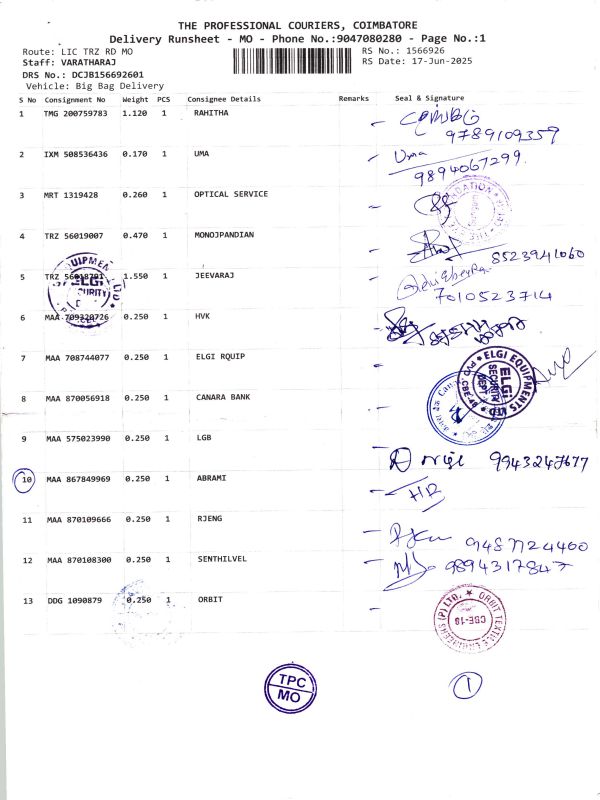 THE PROFESSIONAL COURIERS, COIMBATORE
Delivery Runsheet - MO - Phone No.:9047080280 - Page No.:1
Route: LIC TRZ RD MO
RS No.: 1566926
Staff: VARATHARAJ
RS Date: 17-Jun-2025
DRS No.: DCJB156692601
Vehicle: Big Bag Delivery
S No Consignment No Weight PCS Consignee Details Remarks Seal & Signature
1 TMG 200759783 1.120 1 RAHITHA
9789109359
2 IXM 508536436 0.170 1 UMA Uma
9894067299
3 MRT 1319428 0.260 1 OPTICAL SERVICE
4 TRZ 56019007 0.470 1 MONOJPANDIAN
8523941060
5 TRZ 1.550 1 JEEVARAJ
7010523714
6 MAA 0.250 1 HVK
7 MAA 708744077 0.250 1 ELGI RQUIP
ELGI EQUIPMENTS LTD
ELGI
SECURITY
DEPT
8 MAA 870056918 0.250 1 CANARA BANK
9 MAA 575023990 0.250 1 LGB
9943247677
10 MAA 867849969 0.250 1 ABRAMI
HR
11 MAA 870109666 0.250 1 RJENG
9487724400
12 MAA 870108300 0.250 1 SENTHILVEL
9894317847
13 DDG 1090879 0.250 1 ORBIT
ORBIT TEXTILE ENGINEERS (P) LTD.
CBE-18
TPC
MO
1